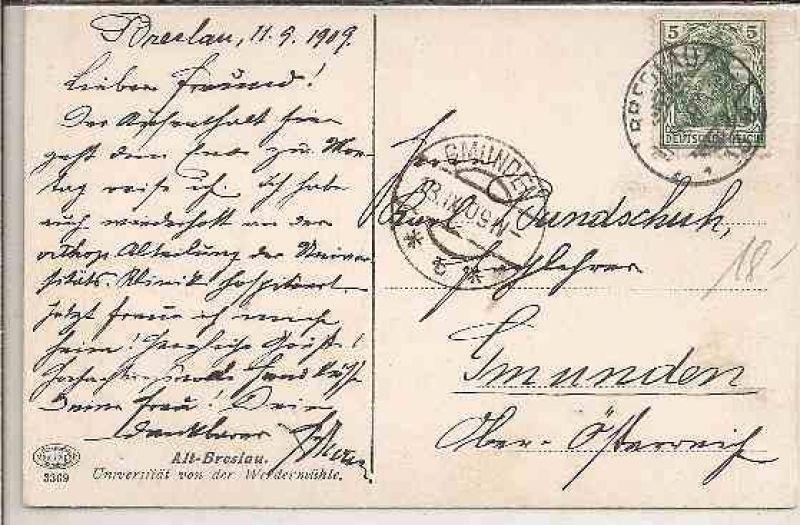 Breslau, 11.9.1909.
Lieber Freund!
Der Aufenthalt hier
geht dem Ende zu. Mon-
tag reise ich. Ich habe
auch wiederholt an der
orthop. Abteilung der Univer-
sitäts. Klinik hospitiert.
Jetzt freue ich mich
heim! Herzliche Grüße!
Handküsse
Deiner Frau! Dein
dankbarer
Alt-Breslau.
Universität von der Werdermühle.
3369
5 5
DEUTSCHES REICH
BRESLAU
GMUNDEN
13.IX.09
Herrn
Karl Pundschuh,
Fachlehrer
Gmunden
Ober-Österreich
18